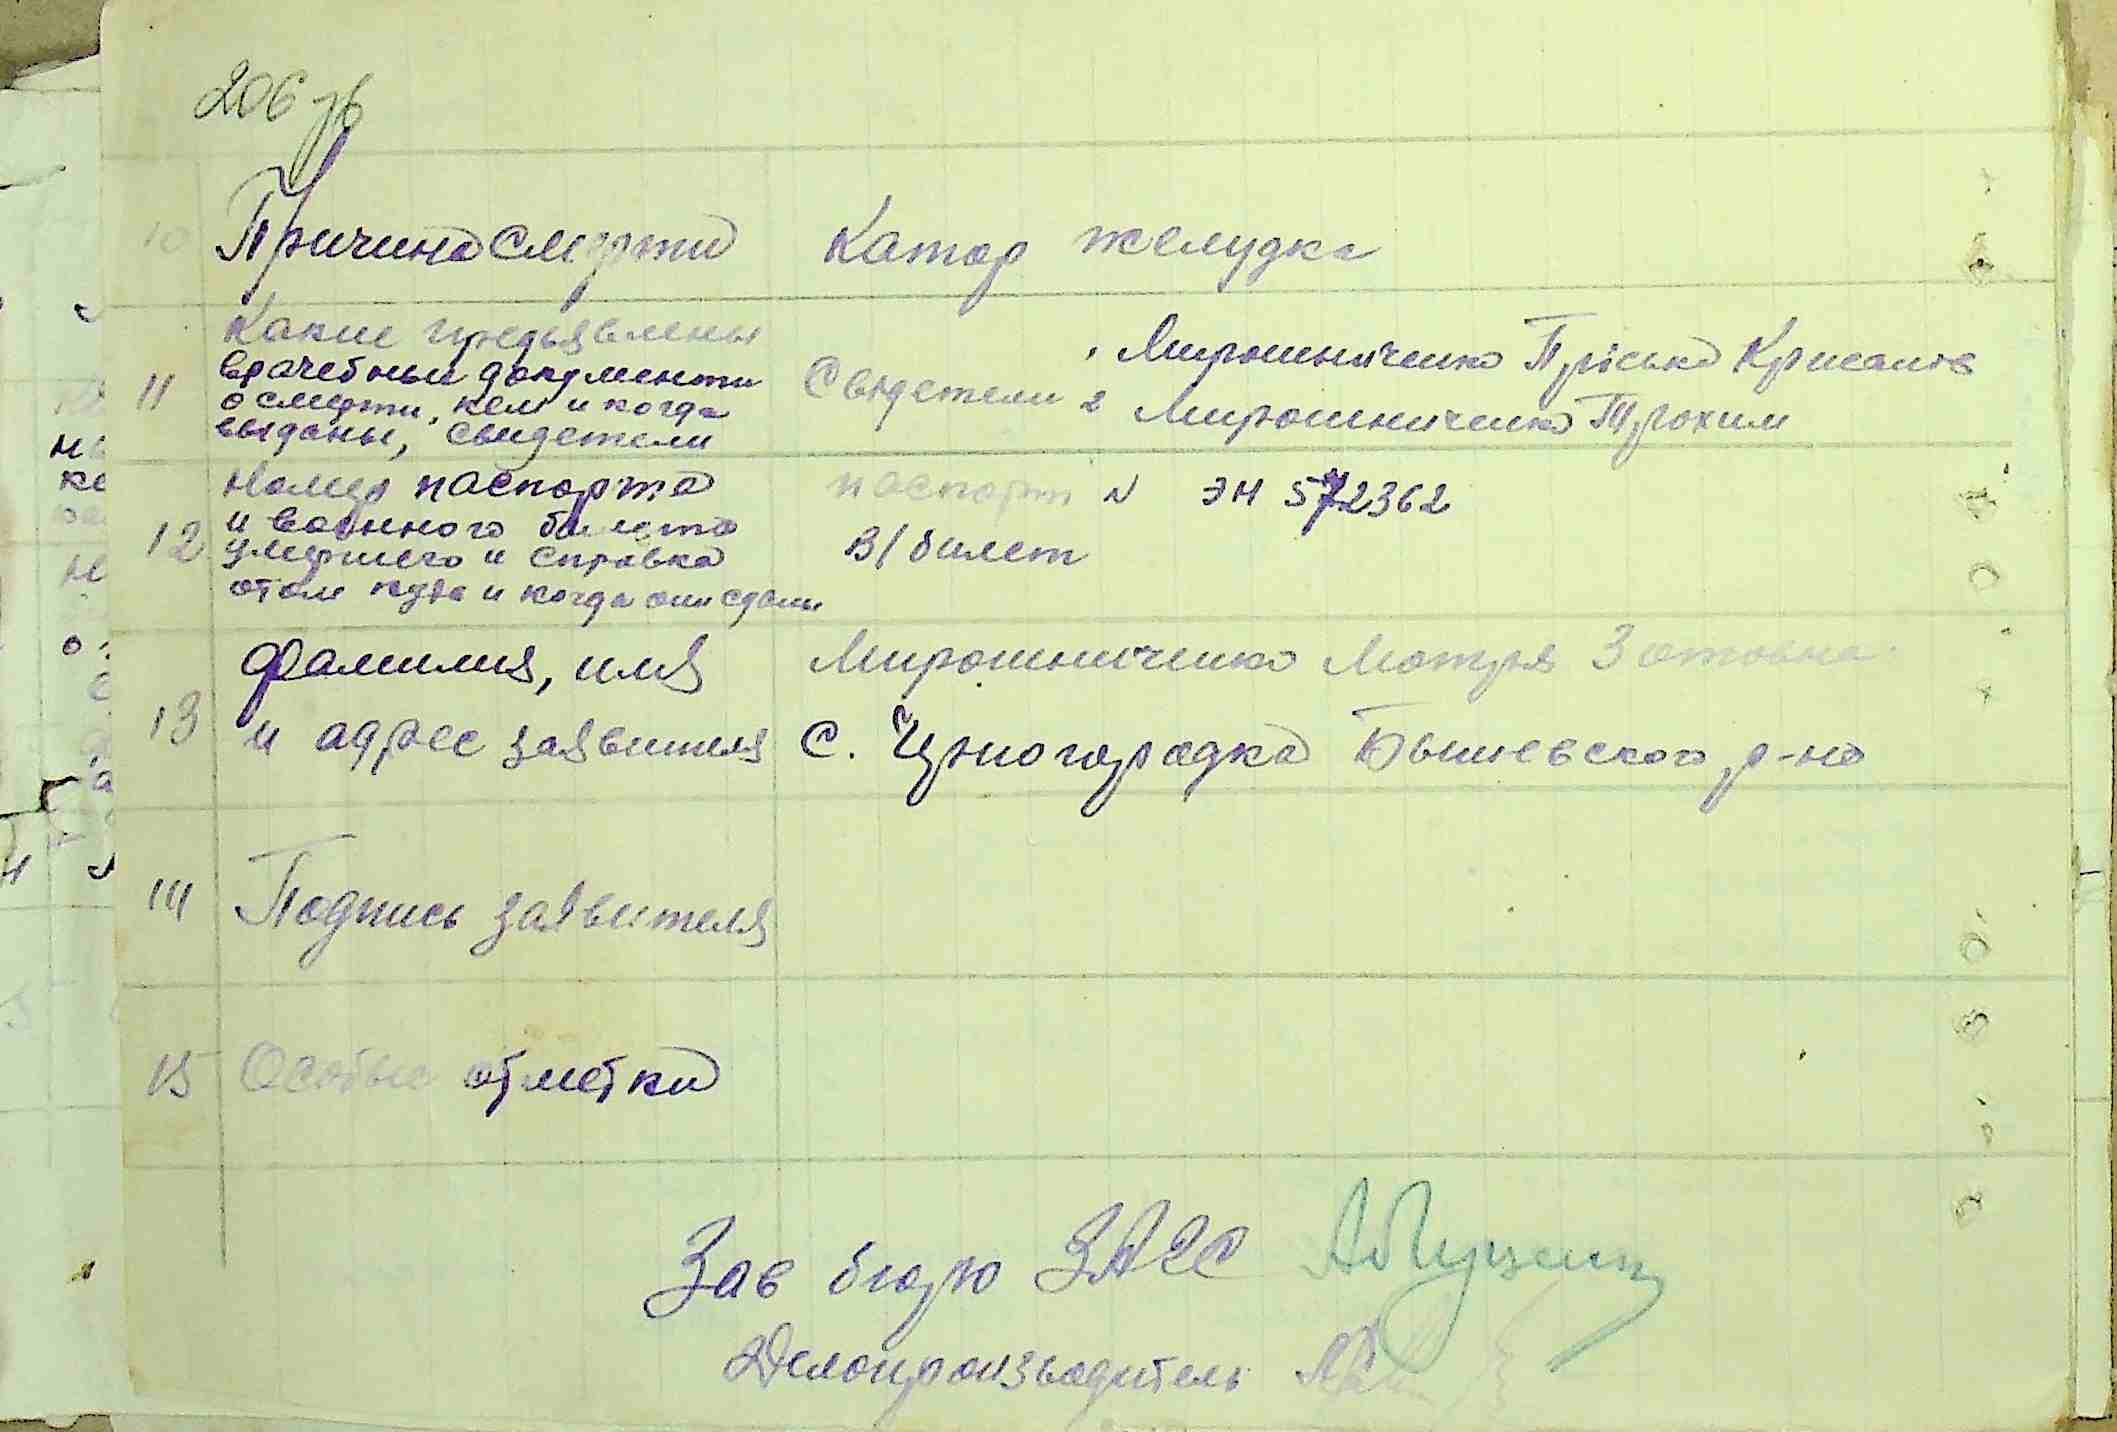 206 зв
10 Причина смерти Катар желудка
Какие предъявлены
врачебные документи
11 о смерти, кем и когда
выданы, свидетели
Свидетели 1 Мирошниченко Пріська Крисанов
2 Мирошниченко Трохим
Номер паспорта
и военного билета
12 умершего и справка
отом куда и когда они сданы
паспорт N ЭН 572362
в/билет
Фамилия, имя Мирошниченко Мотря Зотовна
13 и адрес заявителя с. Чрногородка Бышевского р-на
14 Подпись заявителя
15 Особые отметки
Зав бюро ЗАГС
Делопроизводитель